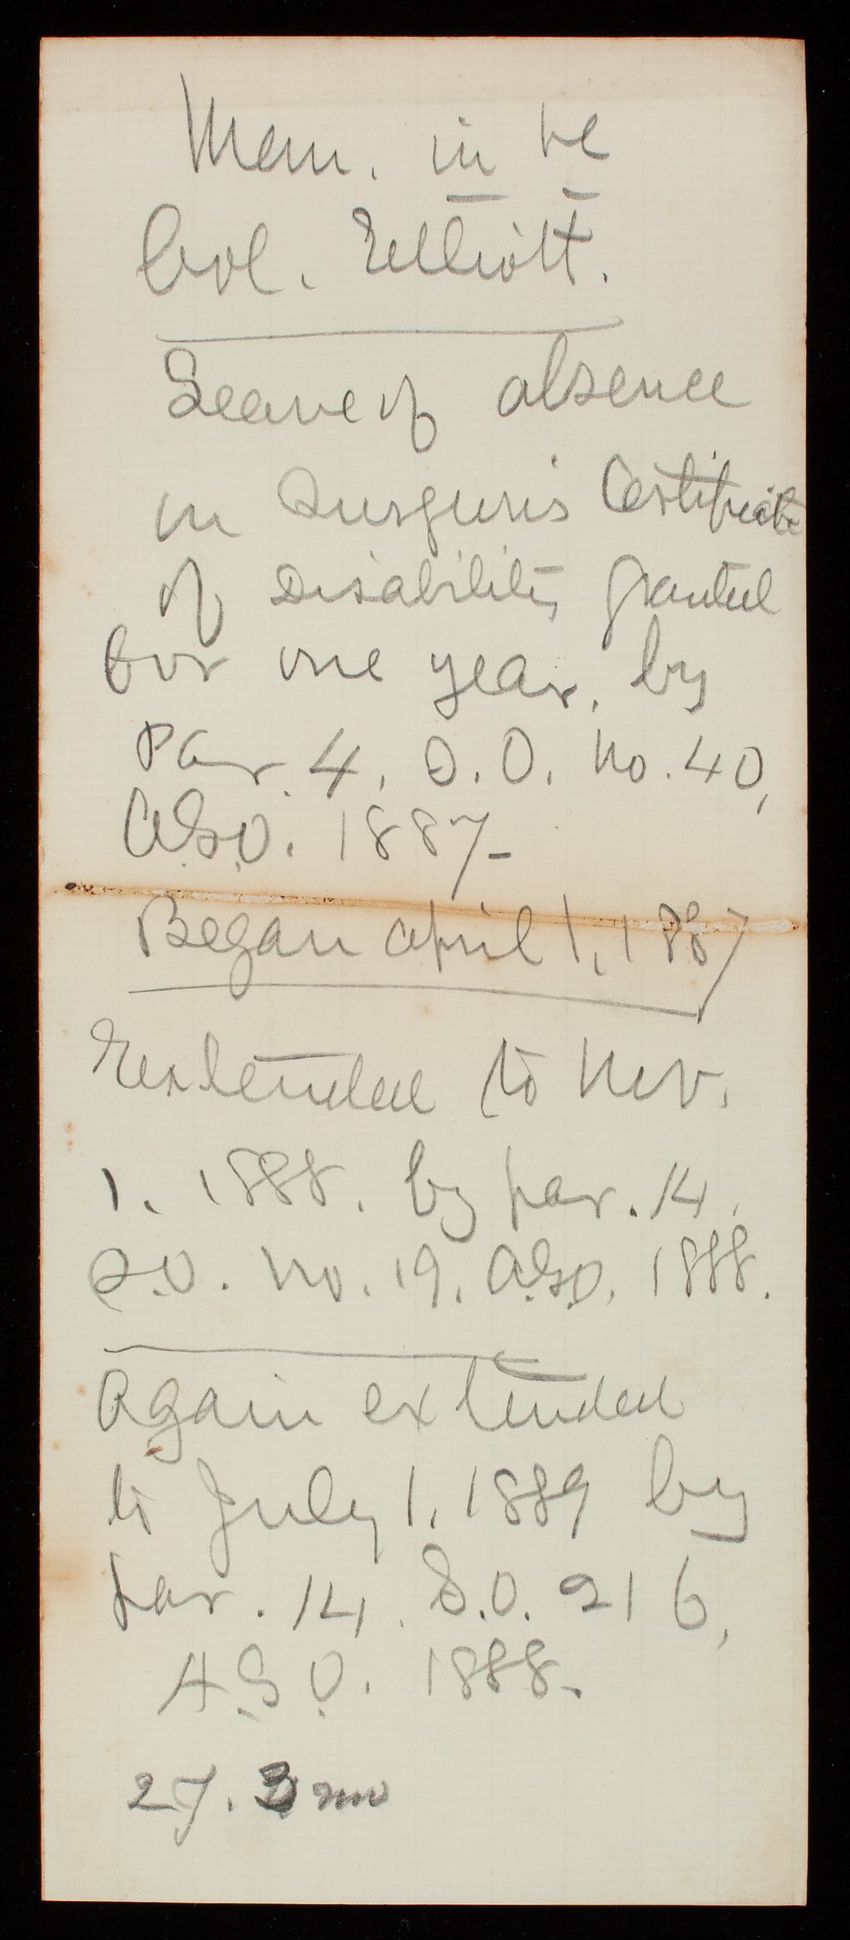 Mem. in re
Col. Elliott.
Leave of absence
on Surgeon's Certificate
of Disability granted
for one year, by
Par. 4, S.O. No. 40,
A.G.O. 1887-
Began April 1, 1887
Extended to Nov.
1. 1888. by par. 14.
S.O. No. 19. A.G.O. 1888.
Again extended
to July 1, 1889 by
par. 14. S.O. 216,
A.G.O. 1888.
2 y. 3 mo